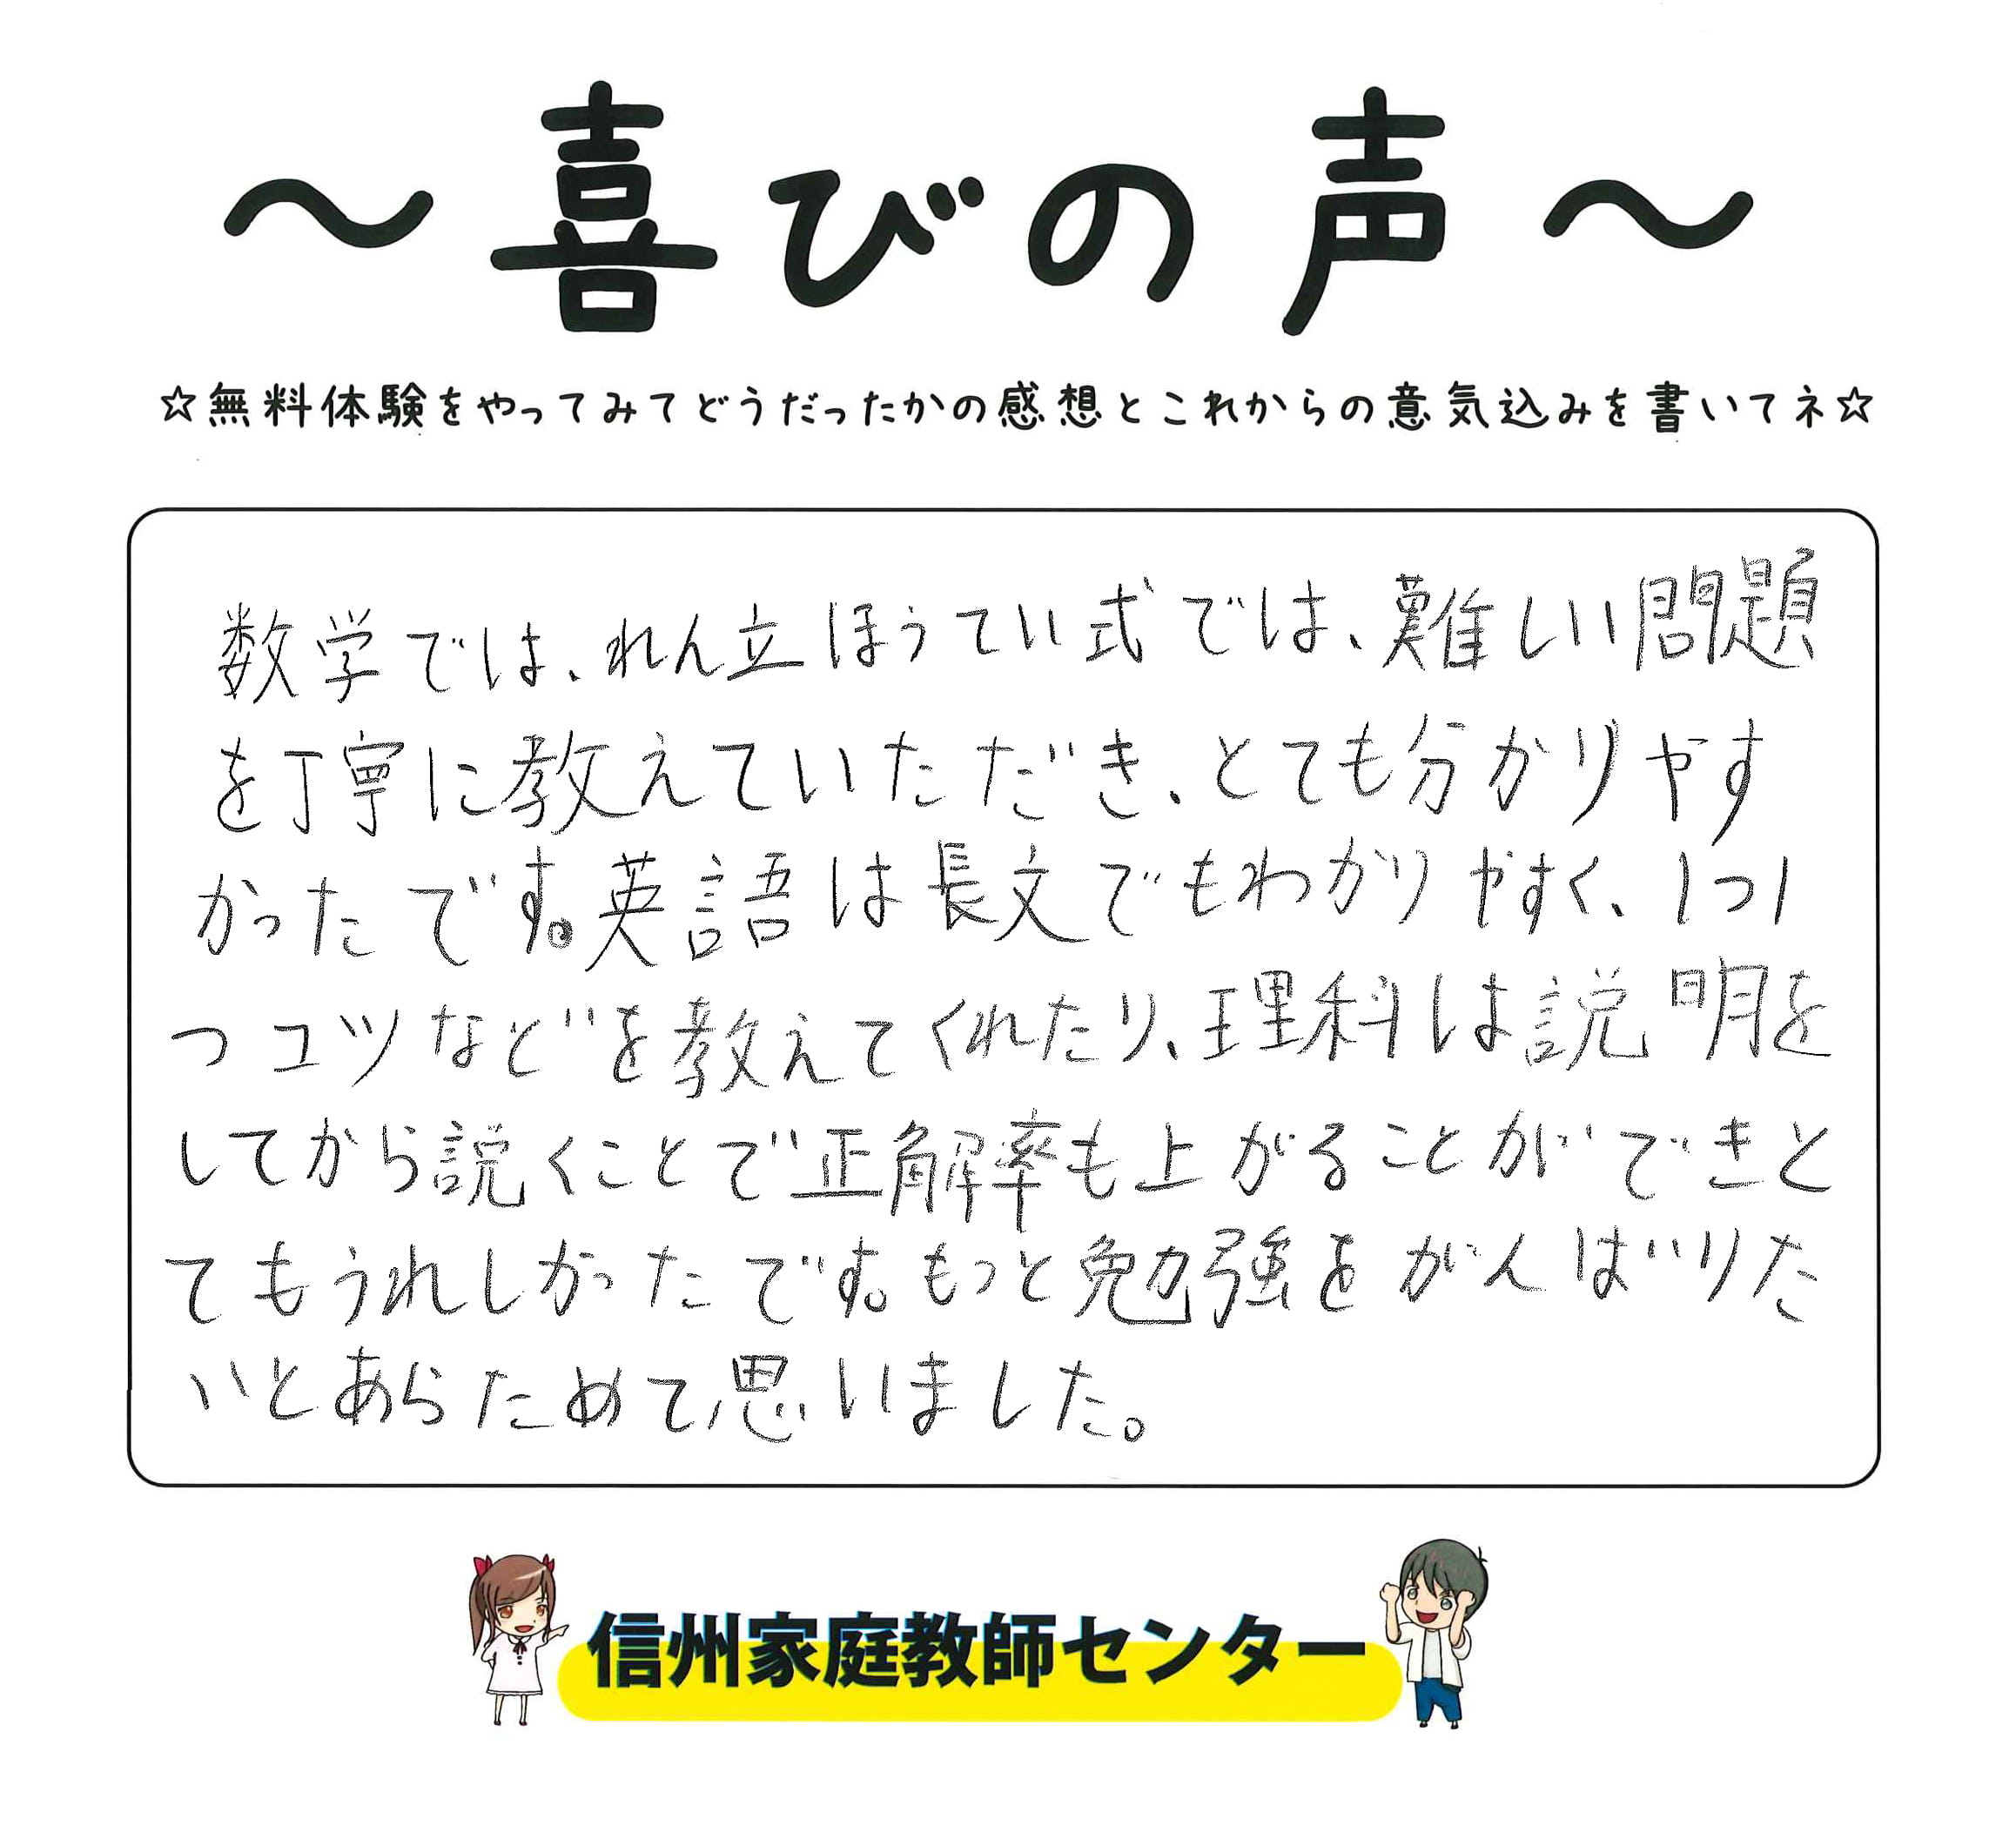 ～喜びの声～
☆無料体験をやってみてどうだったかの感想とこれからの意気込みを書いてネ☆
数学では、れん立ほうてい式では、難しい問題
を丁寧に教えていただき、とても分かりやす
かったです。英語は長文でもわかりやすく、1つ1
つコツなどを教えてくれたり、理科は説明を
してから説くことで正解率も上がることができと
てもうれしかったです。もっと勉強をがんばりた
いとあらためて思いました。
信州家庭教師センター